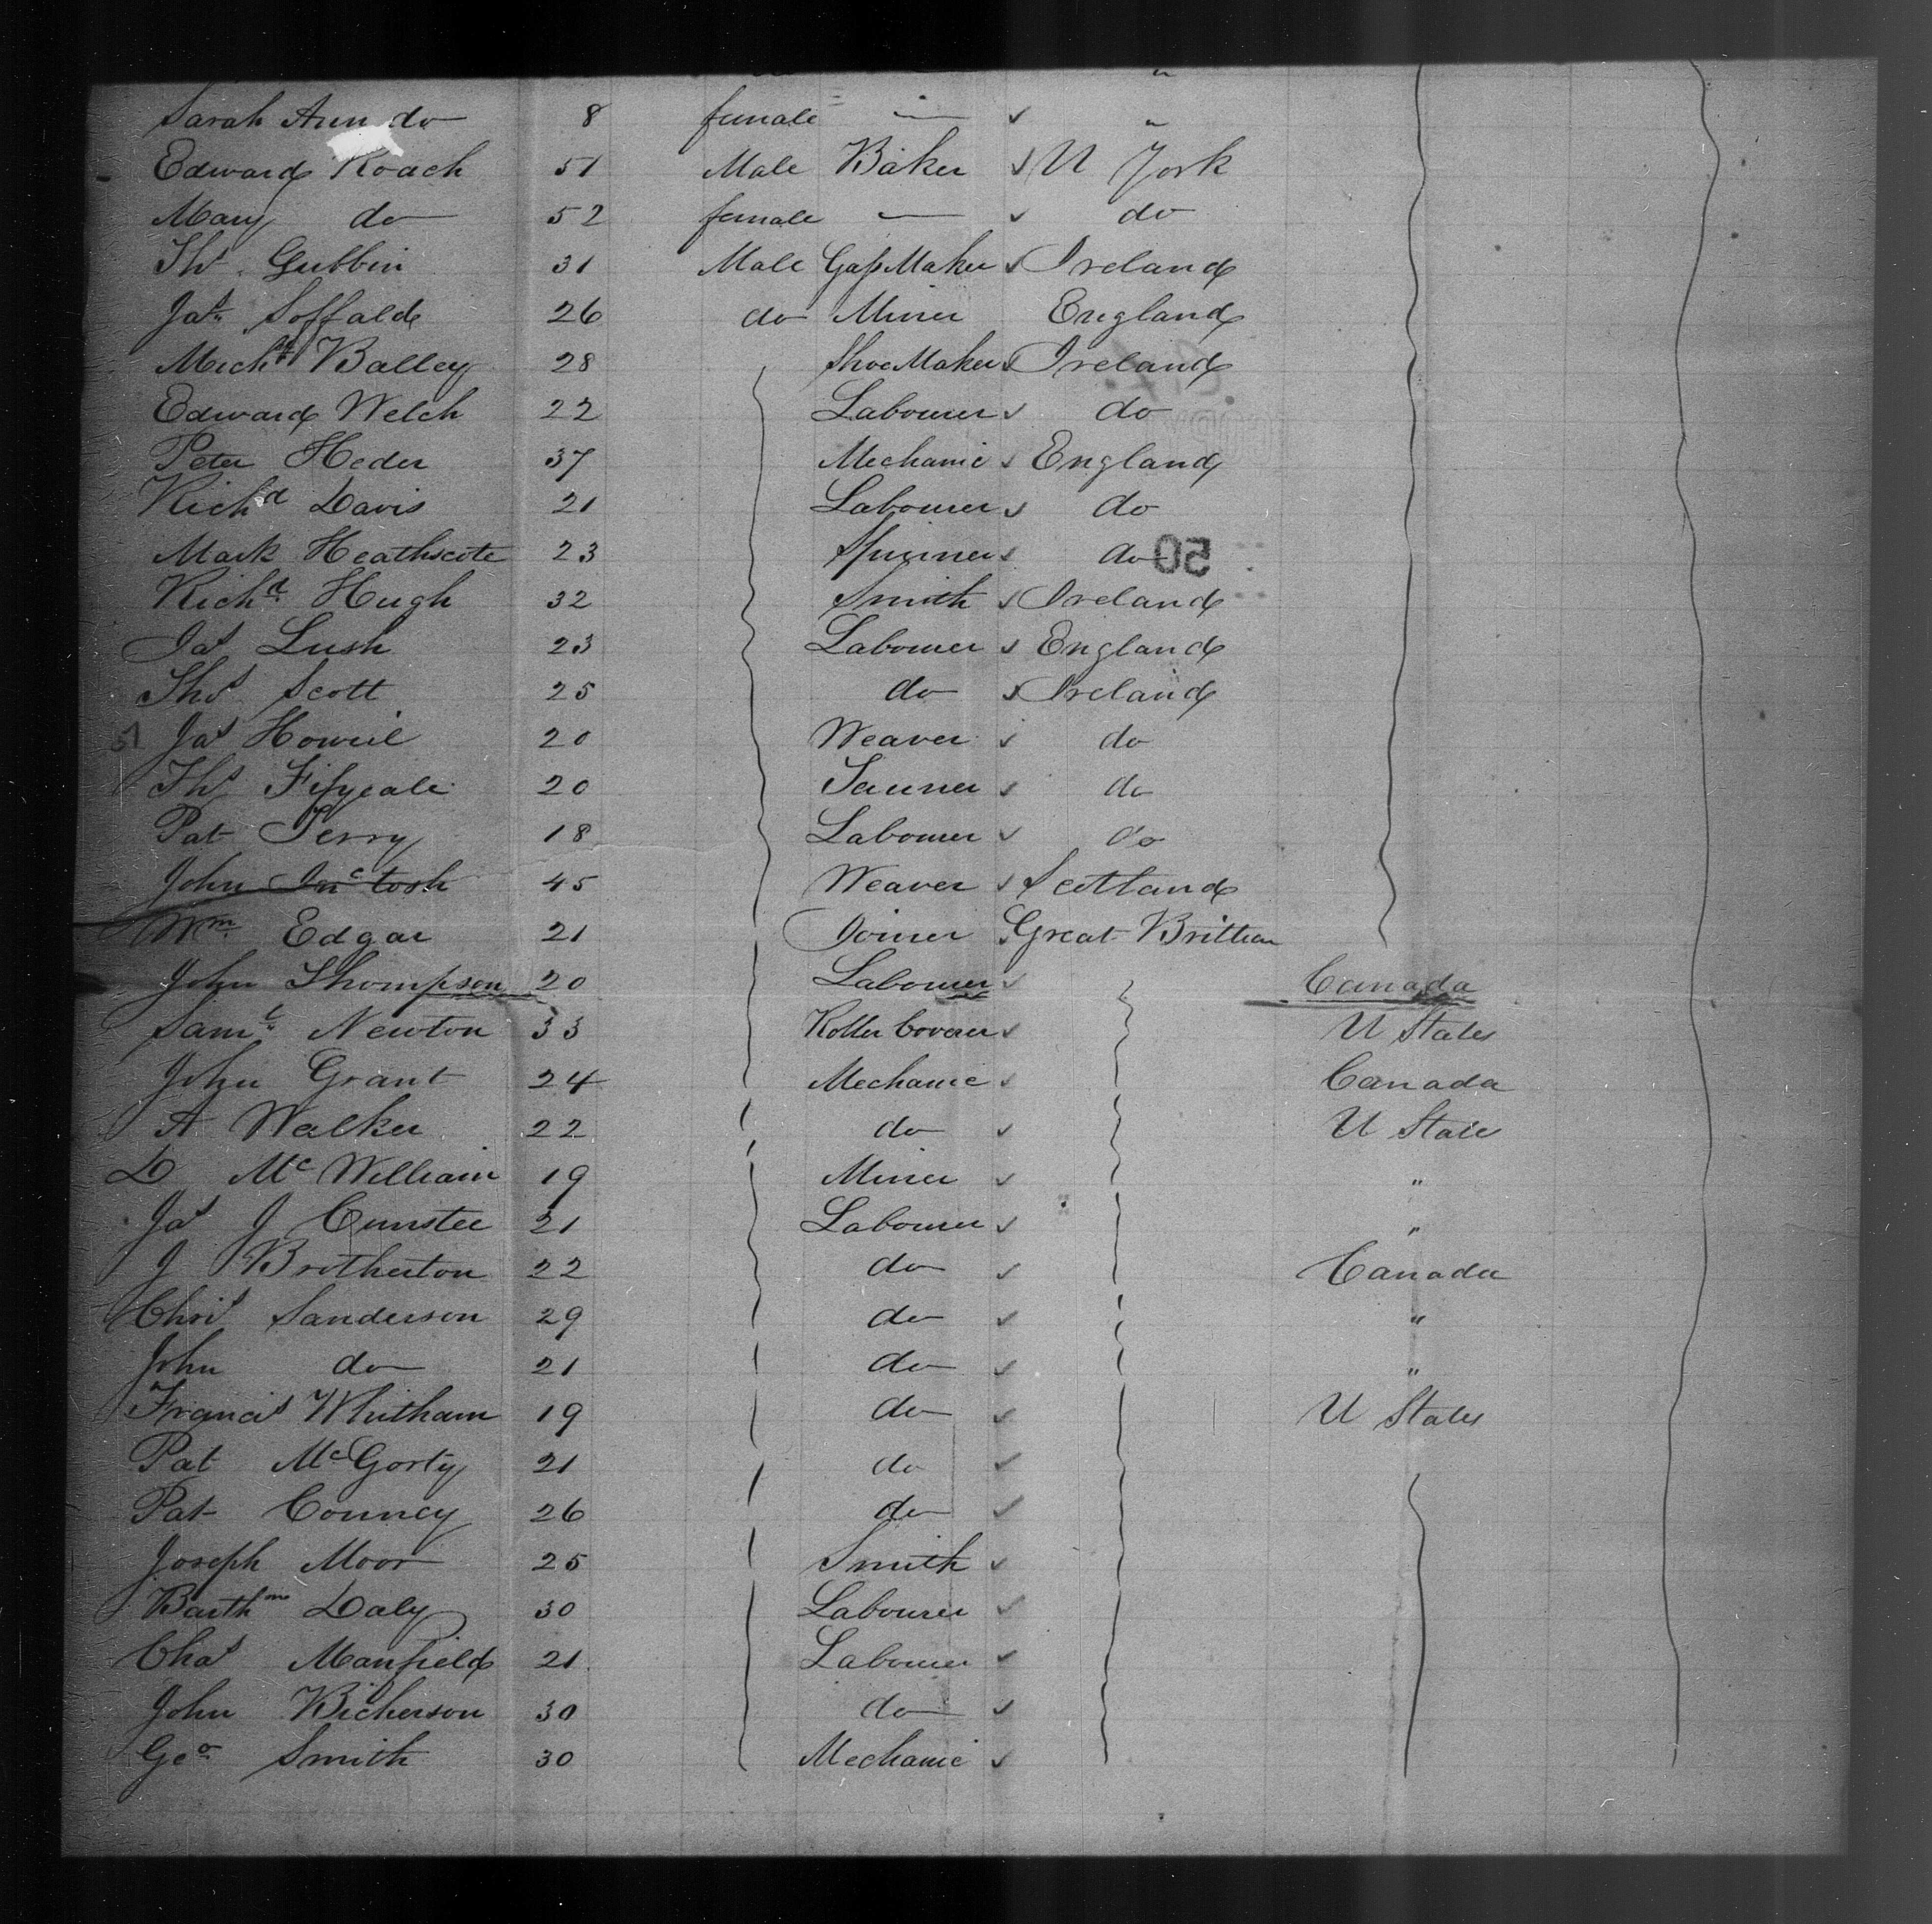 "
Sarah Ann do 8 female — ✓ "
Edward Roach 51 Male Baker ✓ N York
Mary do 52 female — ✓ do
Ths Gubbin 31 Male GassMaker ✓ Ireland
Jas Soffald 26 do Miner England
Michl Balley 28 ShoeMaker ✓ Ireland
Edward Welch 22 Labourer ✓ do
Peter Heder 37 Mechanic ✓ England
Richd Davis 21 Labourer ✓ do
Mark Heathscote 23 Spinner ✓ do 50
Richd Hugh 32 Smith ✓ Ireland
Jas Lush 23 Labourer ✓ England
Thos Scott 25 do ✓ Ireland
51 Jas 20 Weaver ✓ do
Ths 20 Tanner ✓ do
Pat Terry 18 Labourer ✓ do
John Inc tosh 45 Weaver ✓ Scotland
Wm Edgar 21 Joiner ✓ Great Brittian
John Thompson 20 Labourer ✓ Canada
Saml Newton 33 Roller Coverer ✓ U States
John Grant 24 Mechanic ✓ Canada
A Walker 22 do ✓ U States
D McWilliam 19 Miner ✓ "
Jas J 21 Labourer ✓ "
J Brotherton 22 do ✓ Canada
Chris Sanderson 29 do ✓ "
John do 21 do ✓ "
Francis Whitham 19 do ✓ U States
Pat McGorty 21 do ✓
Pat Conney 26 do ✓
Joseph Moor 25 Smith ✓
Barthm Daly 30 Labourer ✓
Chas Manfield 21 Labourer ✓
John Bickerson 30 do ✓
Geo Smith 30 Mechanic ✓